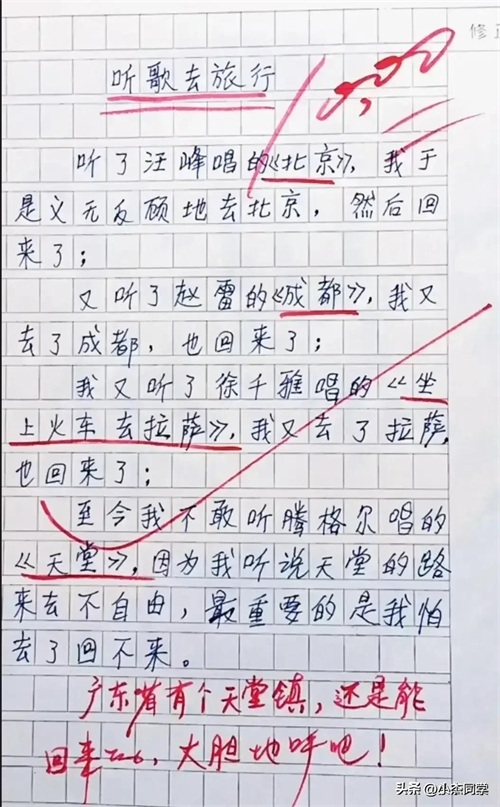 修正
听歌去旅行
听了汪峰唱的《北京》，我于
是义无反顾地去北京，然后回
来了；
又听了赵雷的《成都》，我又
去了成都，也回来了；
我又听了徐千雅唱的《坐
上火车去拉萨》，我又去了拉萨，
也回来了；
至今我不敢听腾格尔唱的
《天堂》，因为我听说天堂的路
来去不自由，最重要的是我怕
去了回不来。
广东省有个天堂镇，还是能
回来，大胆地听吧！
头条 @小杰同学